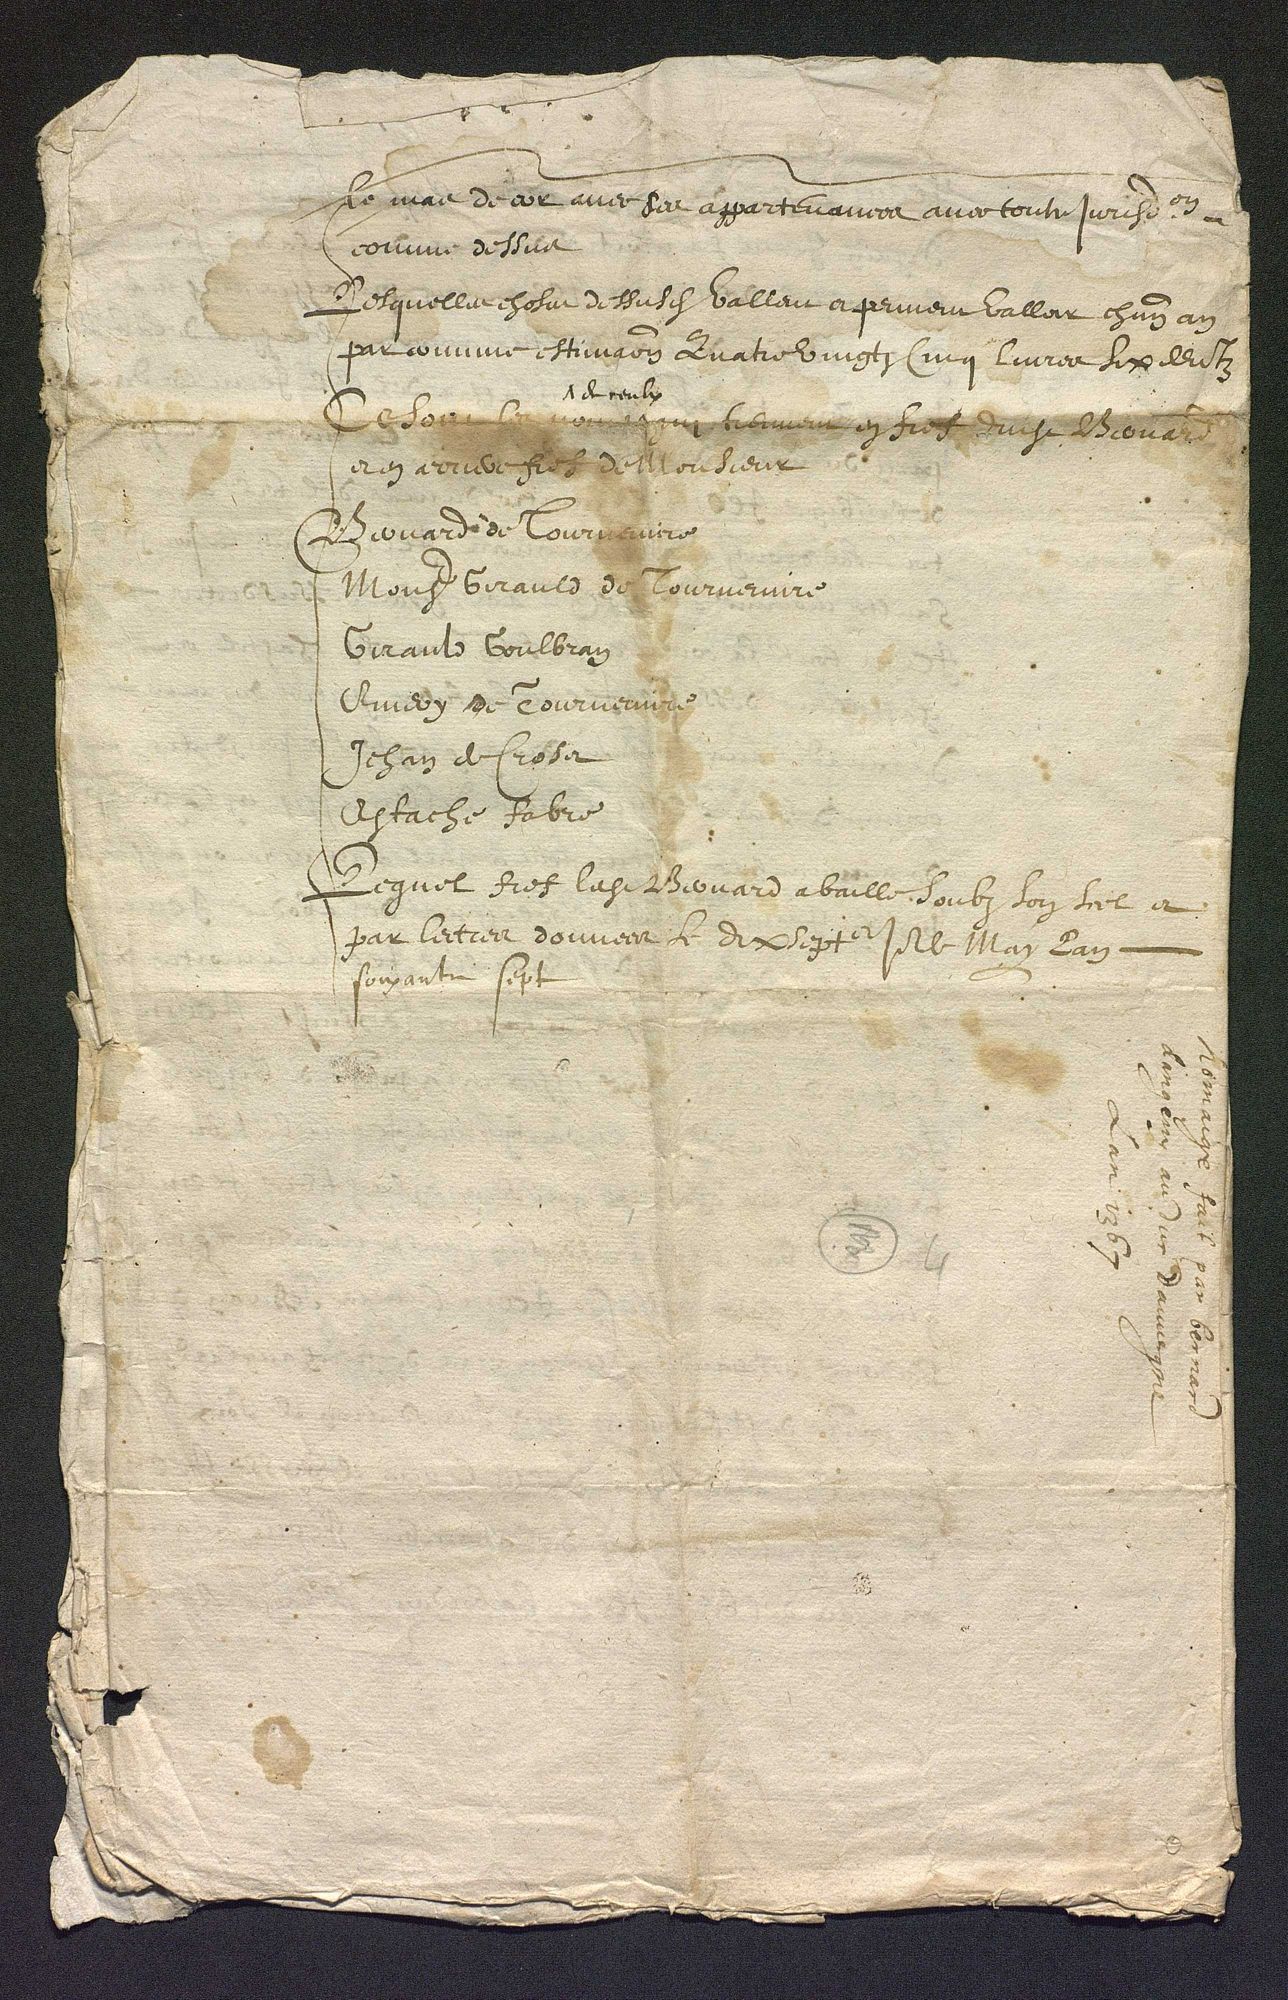 Le mas de cor avec ses appartenances avec toute Jurisd.on
comme dessus
Lesquelles choses dessusd vallent et peuvent valloir chun an
par comune estimaon Quatre vingtz Cinq livres six
Ce sont les noms de ceulx qui tiennent en fief dudit Bernard
et en arriere fief de Monsieur
Bernard de Tournemire
Monsr Girauld de Tournemire
Girauld Goulbran
Aimery de Tournemire
Jehan de Croses
Astache Fabre
Lequel fief led Bernard a baille soubz son seel et
par lettres donnees le dixsept.e Jo de May Lan
soixante sept
homaige fait par bernard
dangeny au duc dauuergne
Lan 1367
4